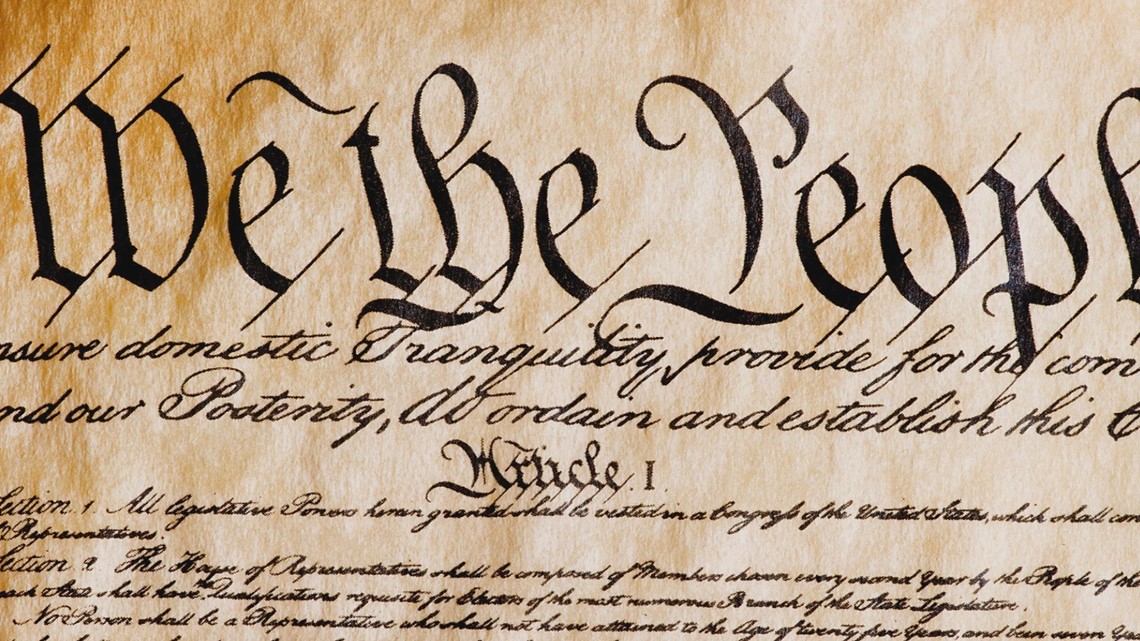 We the Peopl
nsure domestic Tranquility, provide for the com
nd our Posterity, do ordain and establish this C
Article I
Section 1. All legislative Powers herein granted shall be vested in a Congreſs of the United States, which shall con
Representatives.
Section 2. The House of Representatives shall be composed of Members chosen every second Year by the People of th
each State shall have the Qualifications requisite for Electors of the most numerous Branch of the State Legislature.
No Person shall be a Representative who shall not have attained to the Age of twenty five Years, and been seven Y